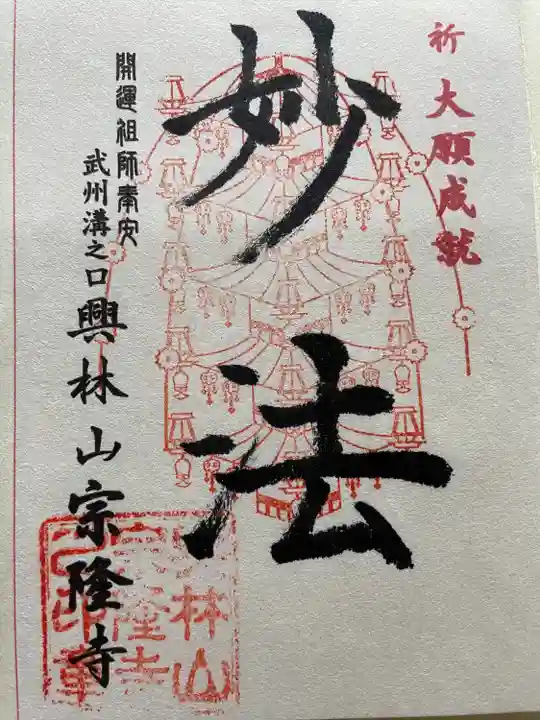 祈 大願成就
妙法
開運祖師奉安
武州溝之口興林山宗隆寺
林山
隆寺